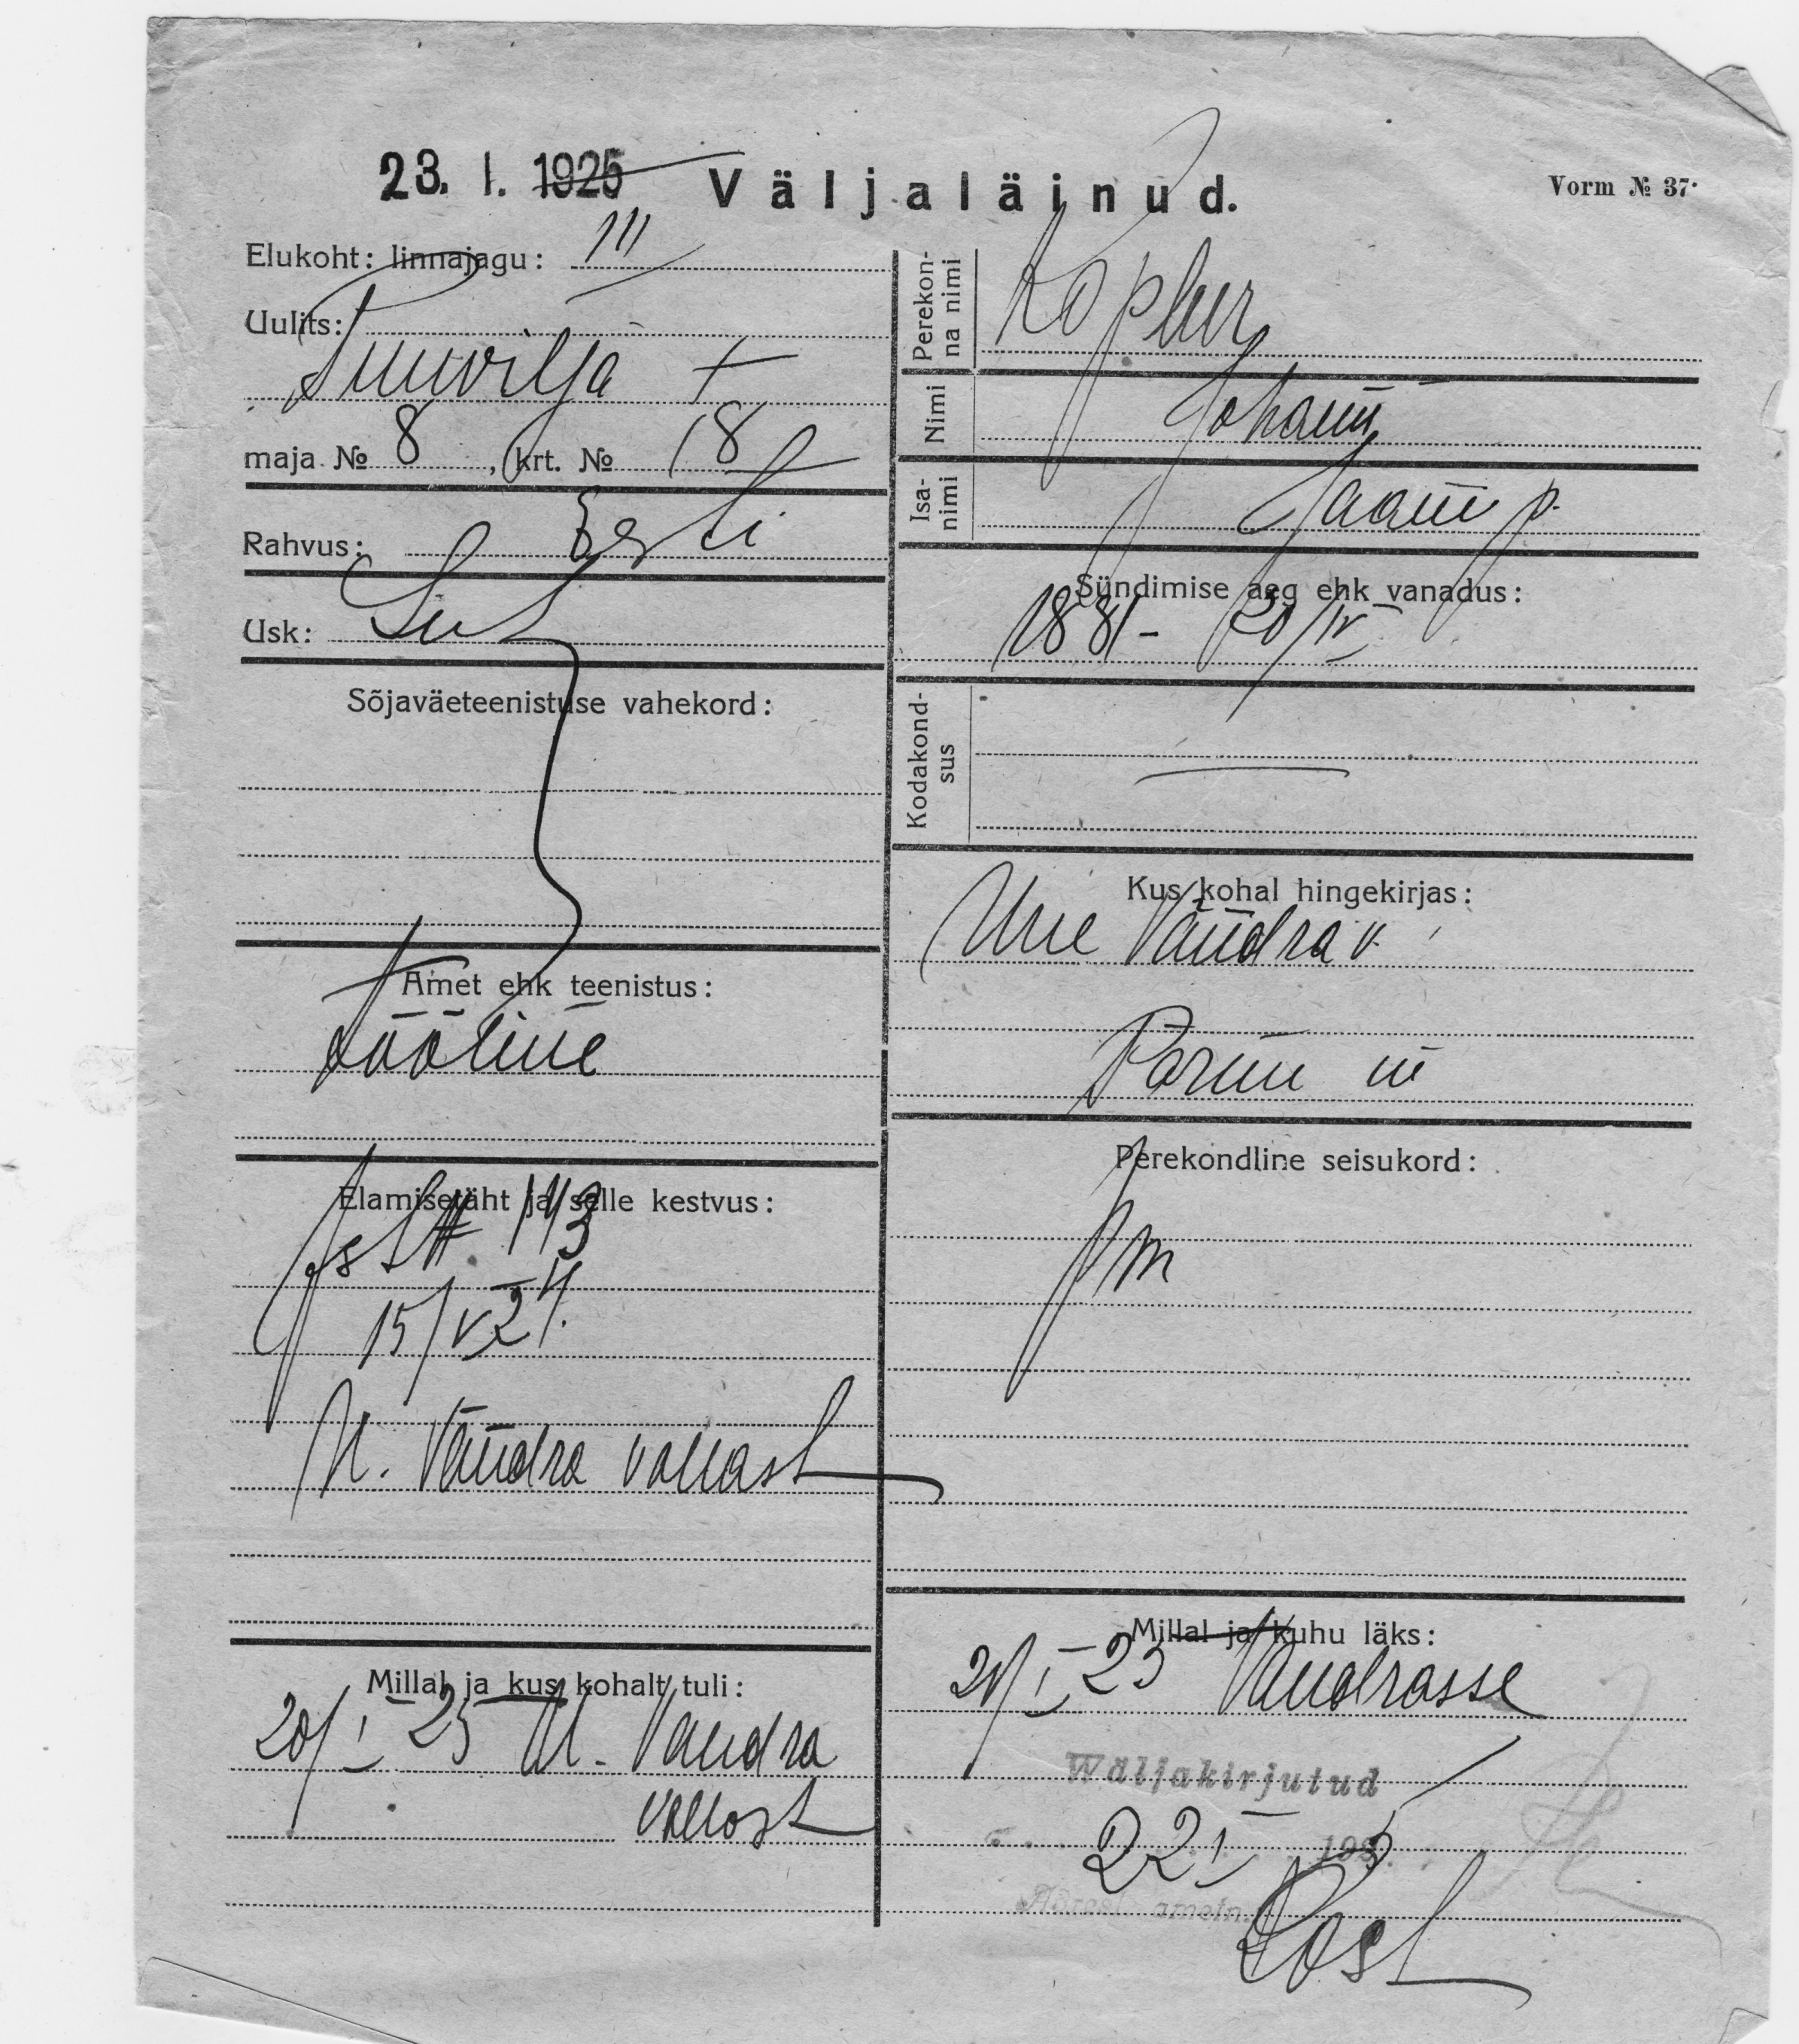 23. I. 1925
Väljaläinud.
Vorm № 37.
Elukoht: linnajagu: III
Uulits:
Puuvilja
maja № 8, krt. № 18
Rahvus: Eesti
Usk: Lut
Sõjaväeteenistuse vahekord:
Amet ehk teenistus:
tööline
Elamisetäht ja selle kestvus:
143
15/V 24.
U. Vändra vallast
Millal ja kus kohalt tuli:
20/I 25 U. Vändra
vallast
Perekonna nimi
Nimi Johann
Isanimi Jaani p.
Sündimise aeg ehk vanadus:
1881 - 20/IV
Kodakondsus
Kus kohal hingekirjas:
Uue Vändra v.
Pärnu m
Perekondline seisukord:
Millal ja kuhu läks:
21/I 25 Vändrasse
Wäljakirjutud
22 I 1925